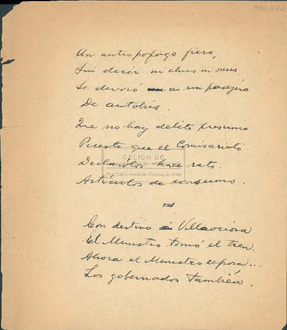 Un antropófago fiero,
Sin decir ni chus ni mus
Se devoró a un pasajero
De autobús.
Que no hay delito presumo
Puesto que el Comisariato
Declarólos hace rato
Artículos de consumo.
Con destino a Villaviciosa
El Ministro tomó el tren.
Ahora el Ministro reposa..
Los gobernados también.
CELICH UC